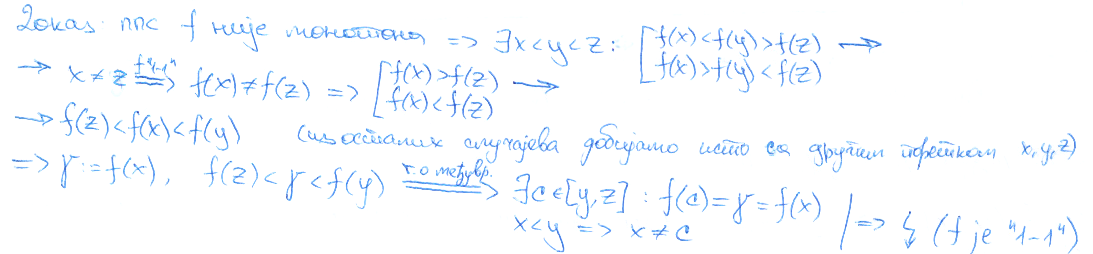 Доказ: ппс f није монотона => ∃x<y<z: [ f(x)<f(y)>f(z) →
[ f(x)>f(y)<f(z)
→ x≠z =("1-1")=> f(x)≠f(z) => [ f(x)>f(z) →
[ f(x)<f(z)
→ f(z)<f(x)<f(y) (из осталих случајева добијамо исто са другим поретком x,y,z)
=> γ:=f(x), f(z)<γ<f(y) =(т. о међувр.)=> ∃c∈[y,z] : f(c)=γ=f(x) | => ↯ (f је "1-1")
x<y => x≠c